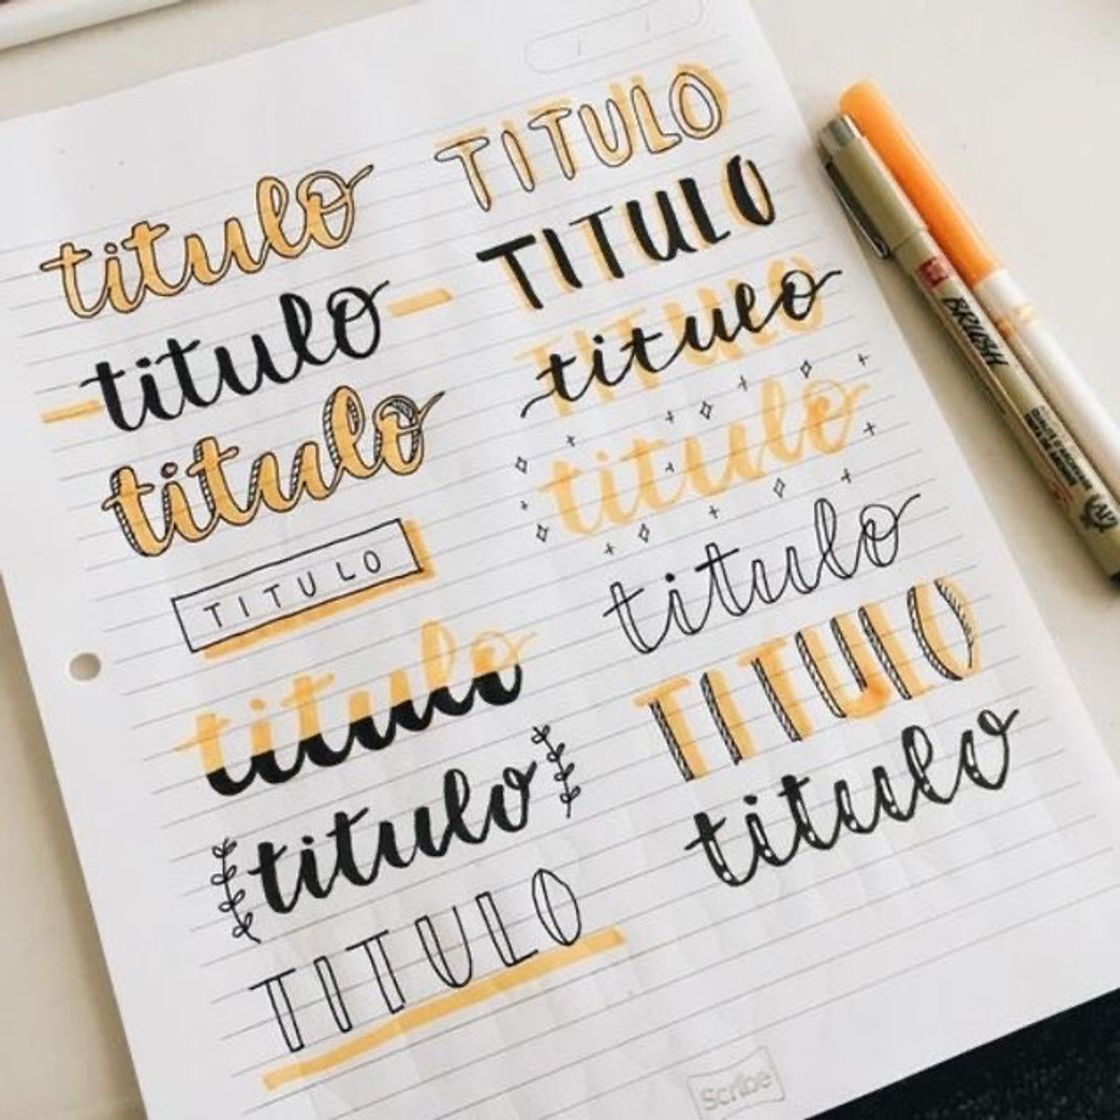 titulo
titulo
titulo
TITULO
titulo
titulo
TITULO
TITULO
TITULO
titulo
titulo
titulo
TITULO
titulo
Scribe
BRUSH